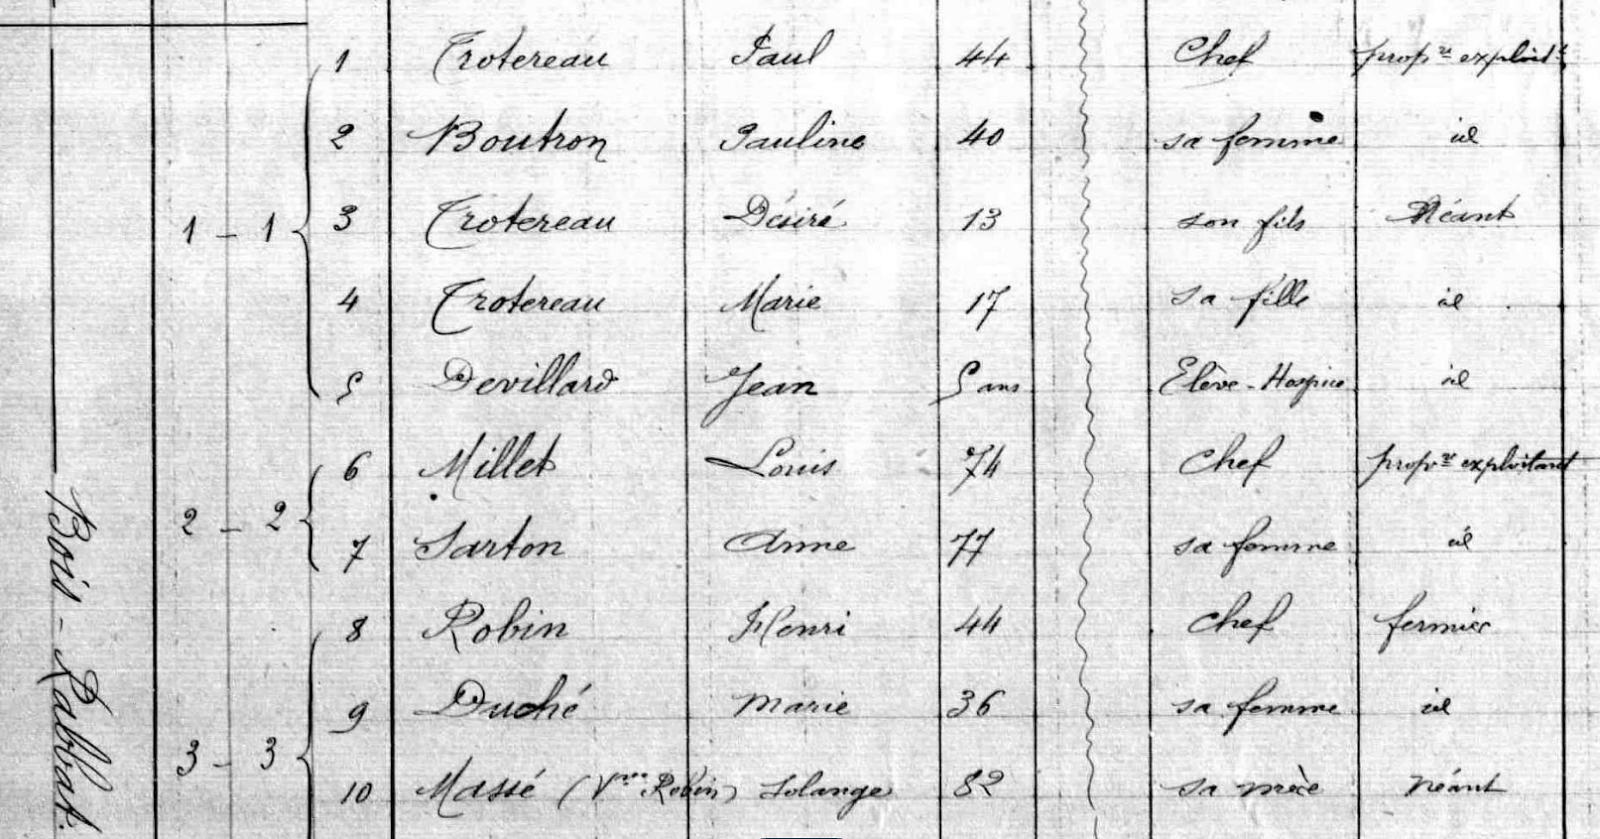 1 Trotereau Paul 44 Chef prop.re exploit.t
2 Boutron Pauline 40 sa femme id
1 - 1 3 Trotereau Désiré 13 son fils Néant
4 Trotereau Marie 17 sa fille id
5 Devillard Jean 5 ans Elève - Hospice id
6 Millet Louis 74 Chef prop.re exploitant
2 - 2 7 Sarton Anne 77 sa femme id
8 Robin Henri 44 Chef fermier
9 Duché Marie 36 sa femme id
3 - 3 10 Massé (Vve Robin) Solange 82 sa mère néant
Bois - Rabbat.